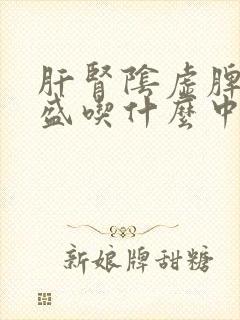 肝腎陰虛脾
盛喫什麼中
新娘牌甜糖